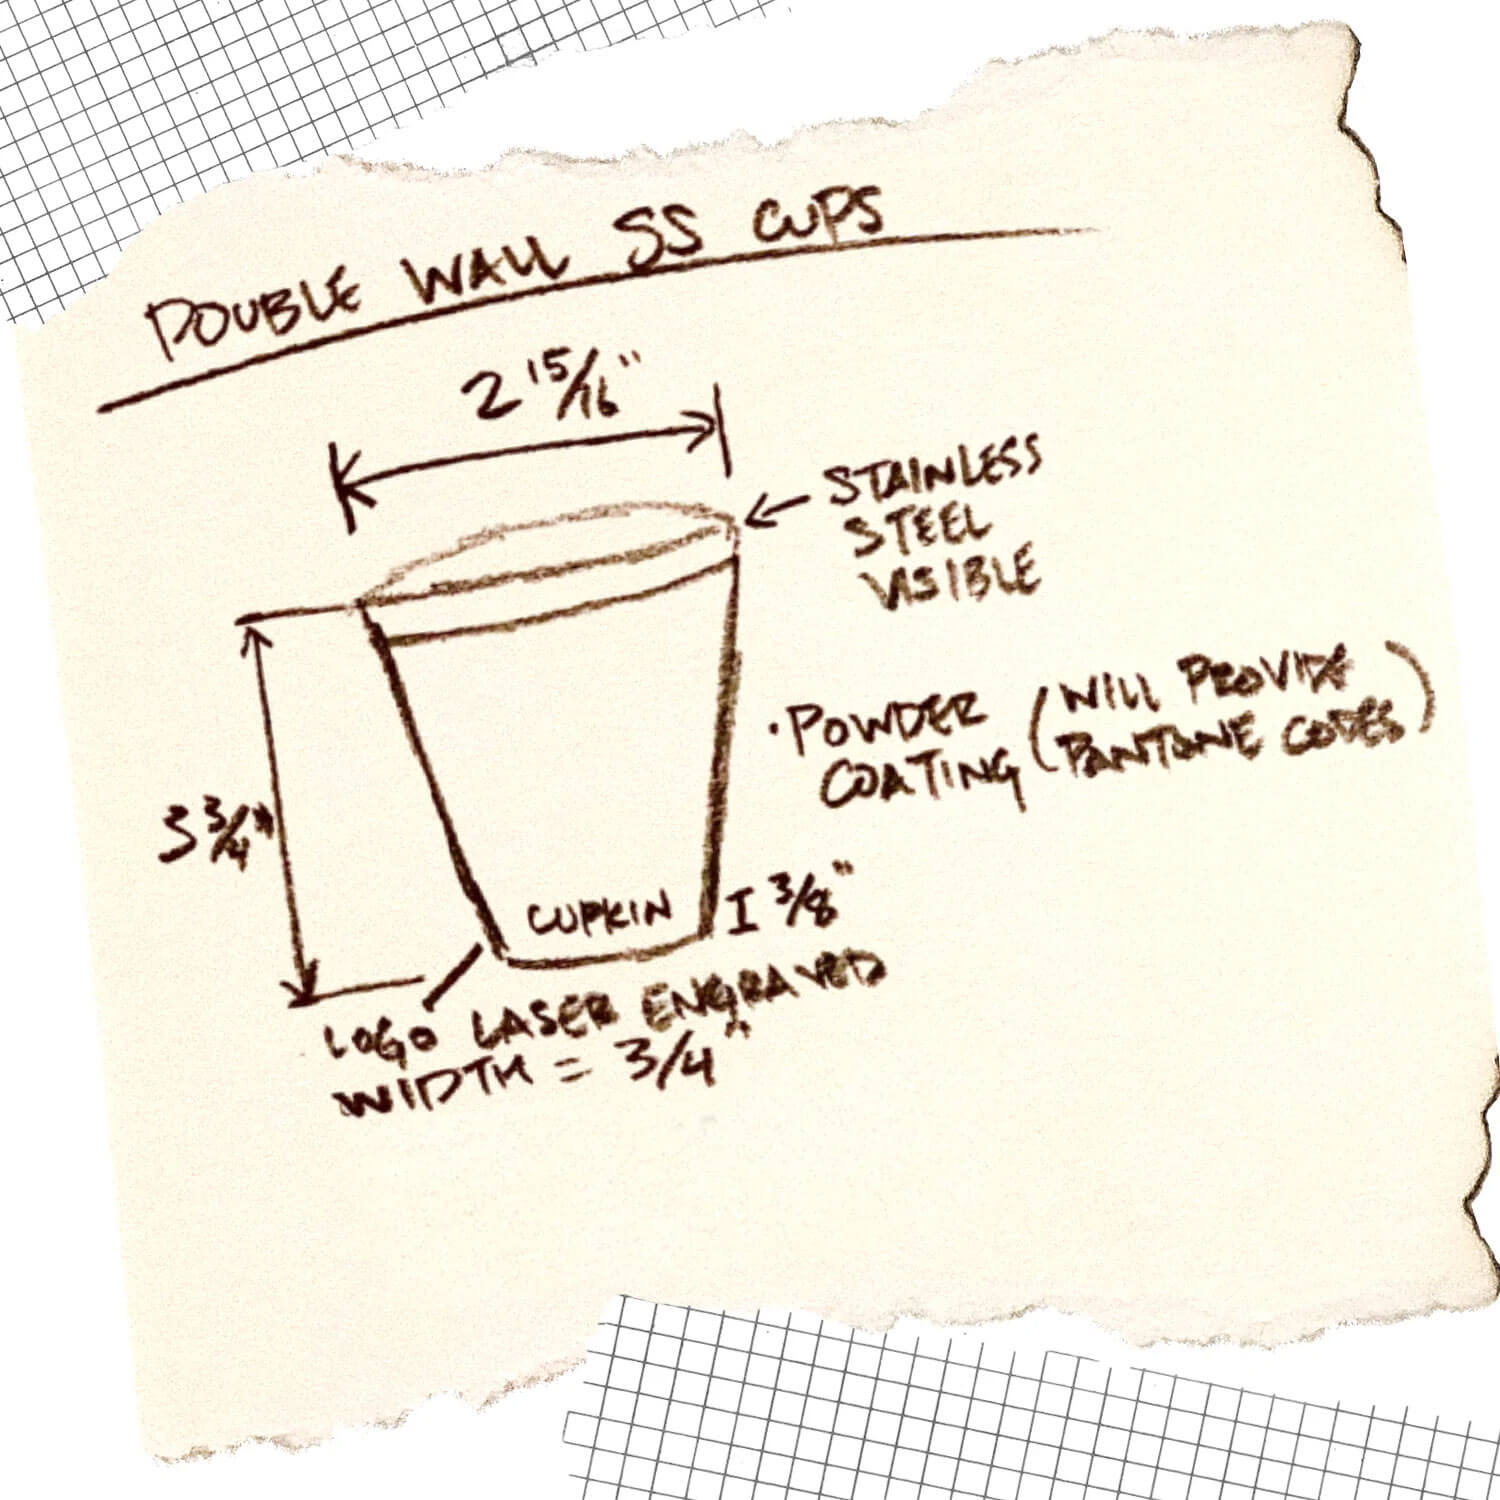 DOUBLE WALL SS CUPS
2 15/16"
STAINLESS
STEEL
VISIBLE
• POWDER
COATING
(WILL PROVIDE
PANTONE CODES)
3 3/4"
CUPKIN
I 3/8"
LOGO LASER ENGRAVED
WIDTH = 3/4"